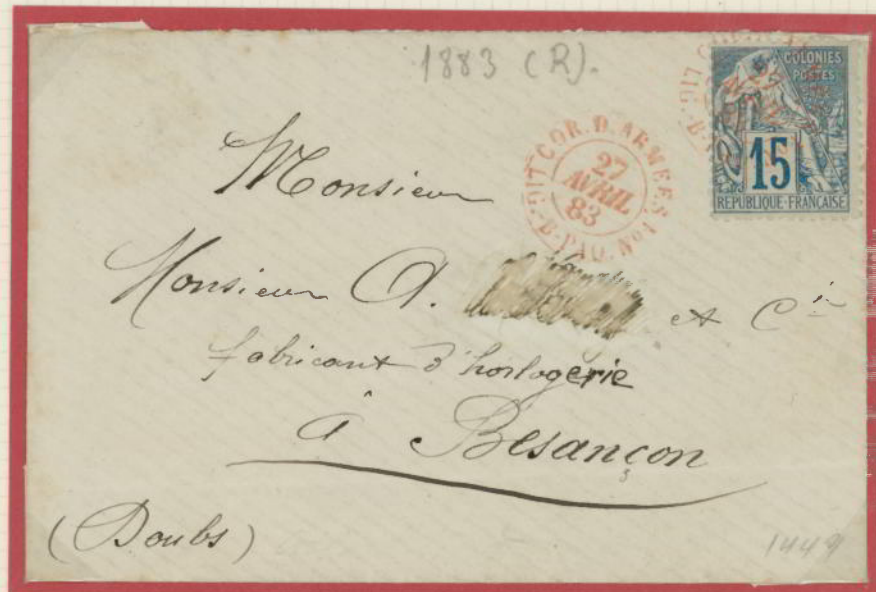 1883 (R).
COLONIES
POSTES
15
REPUBLIQUE FRANCAISE
COR. D. ARMEES
27
AVRIL
83
PAQ. No 1
Monsieur
Monsieur A. et Cie
fabricant d'horlogerie
à Besançon
(Doubs)
1449